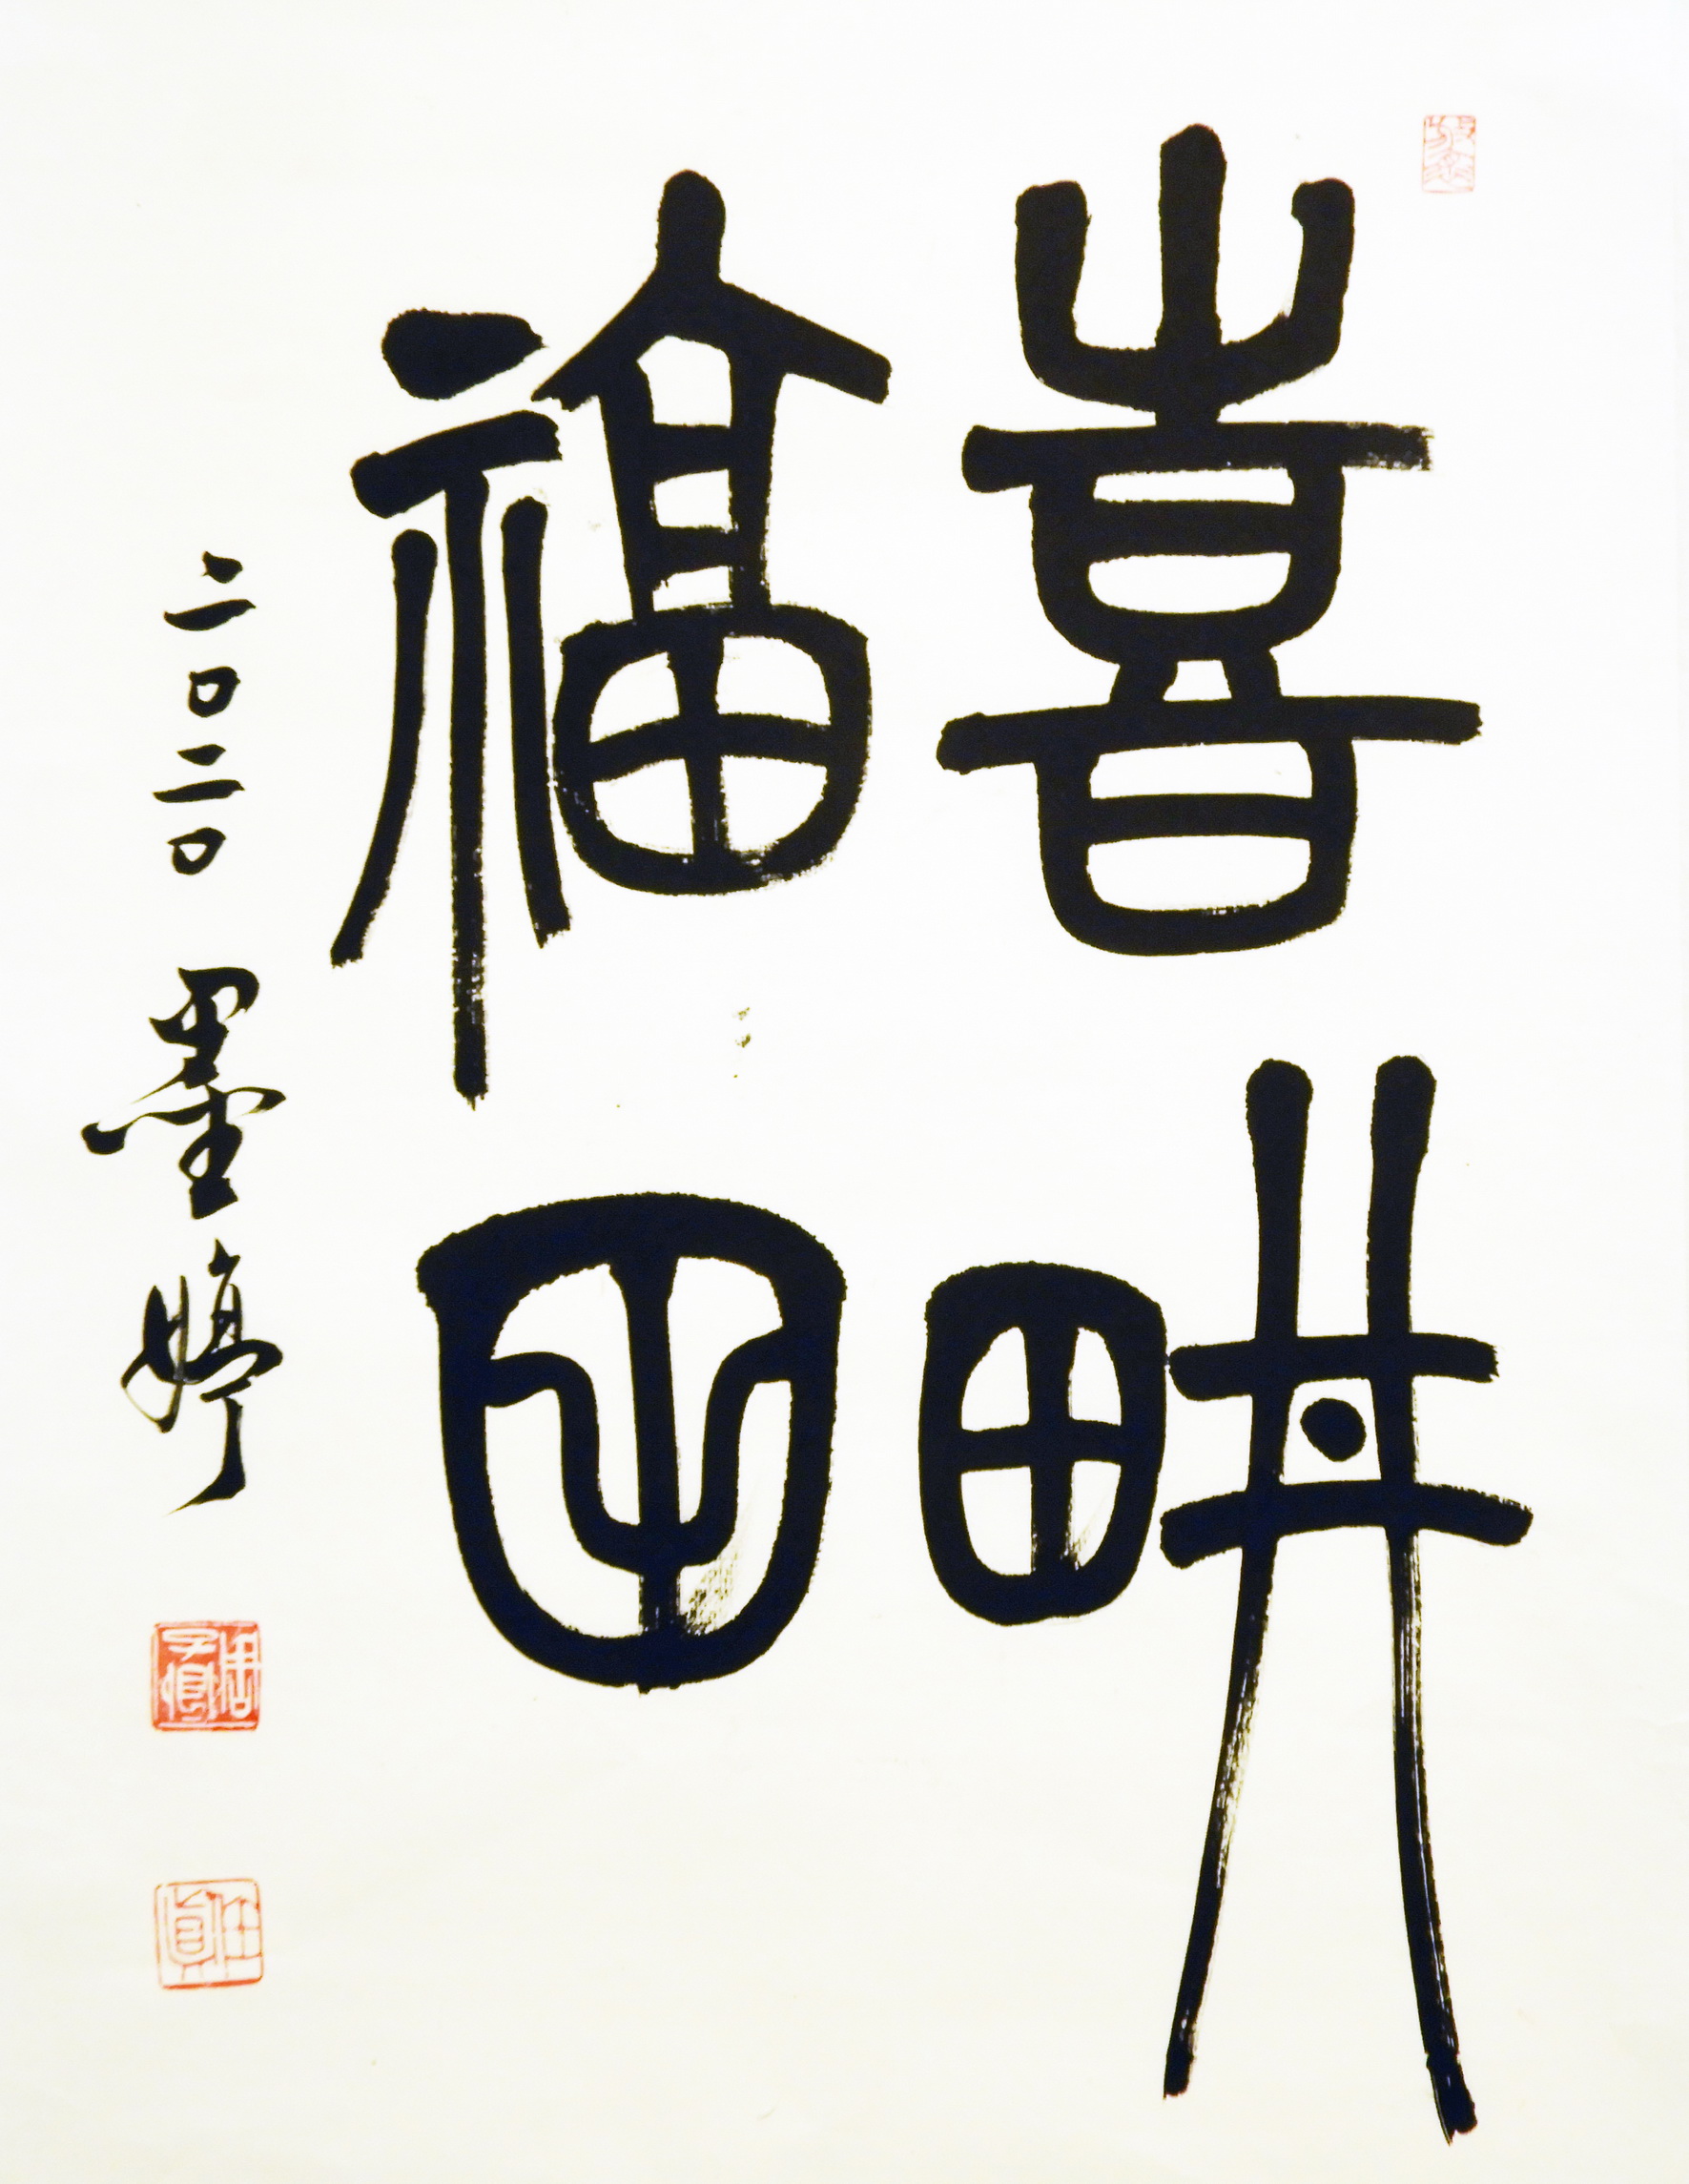 喜畊
福田
二〇二〇 墨婷
任真